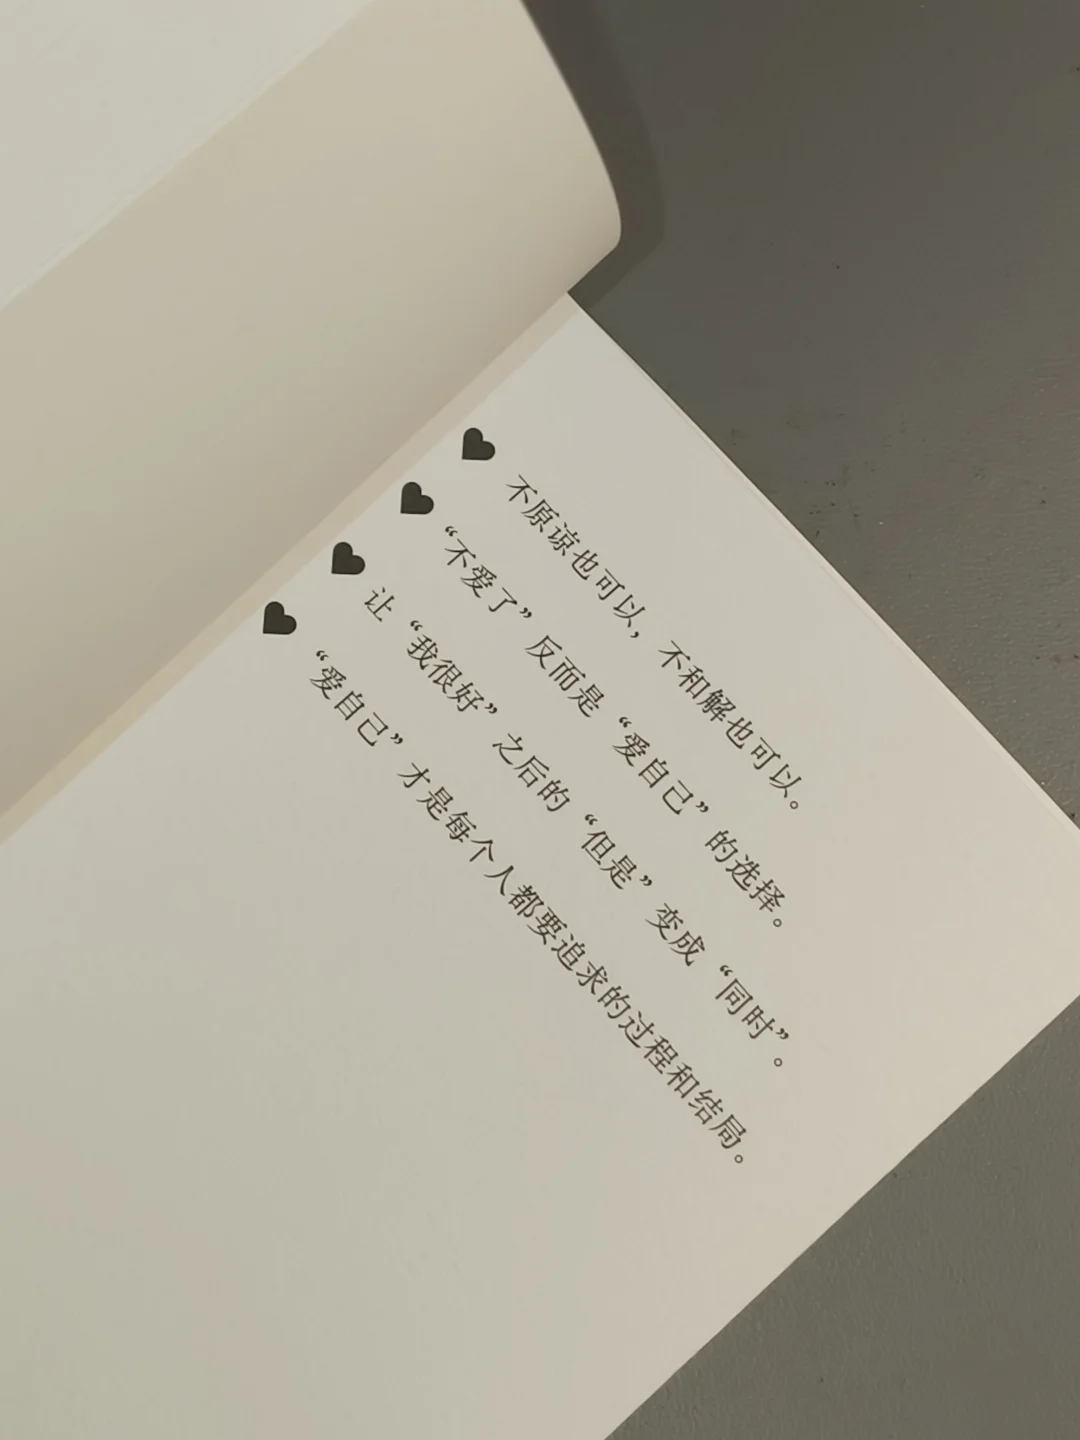 不原谅也可以，不和解也可以。
“不爱了”反而是“爱自己”的选择。
让“我很好”之后的“但是”变成“同时”。
“爱自己”才是每个人都要追求的过程和结局。